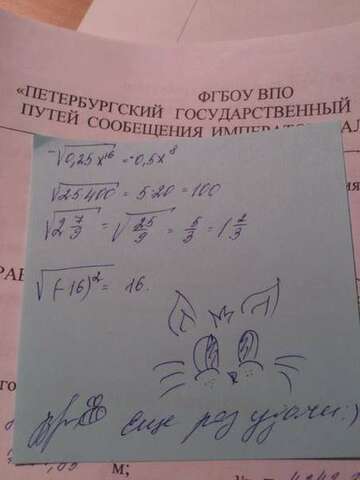 ФГБОУ ВПО
«ПЕТЕРБУРГСКИЙ ГОСУДАРСТВЕННЫЙ
ПУТЕЙ СООБЩЕНИЯ ИМПЕРАТО
-√0,25x¹⁶ = -0,5x⁸
√25·400 = 5·20 = 100
√2 7/9 = √25/9 = 5/3 = 1 2/3
√(-16)² = 16.
еще раз удачи :)
м;